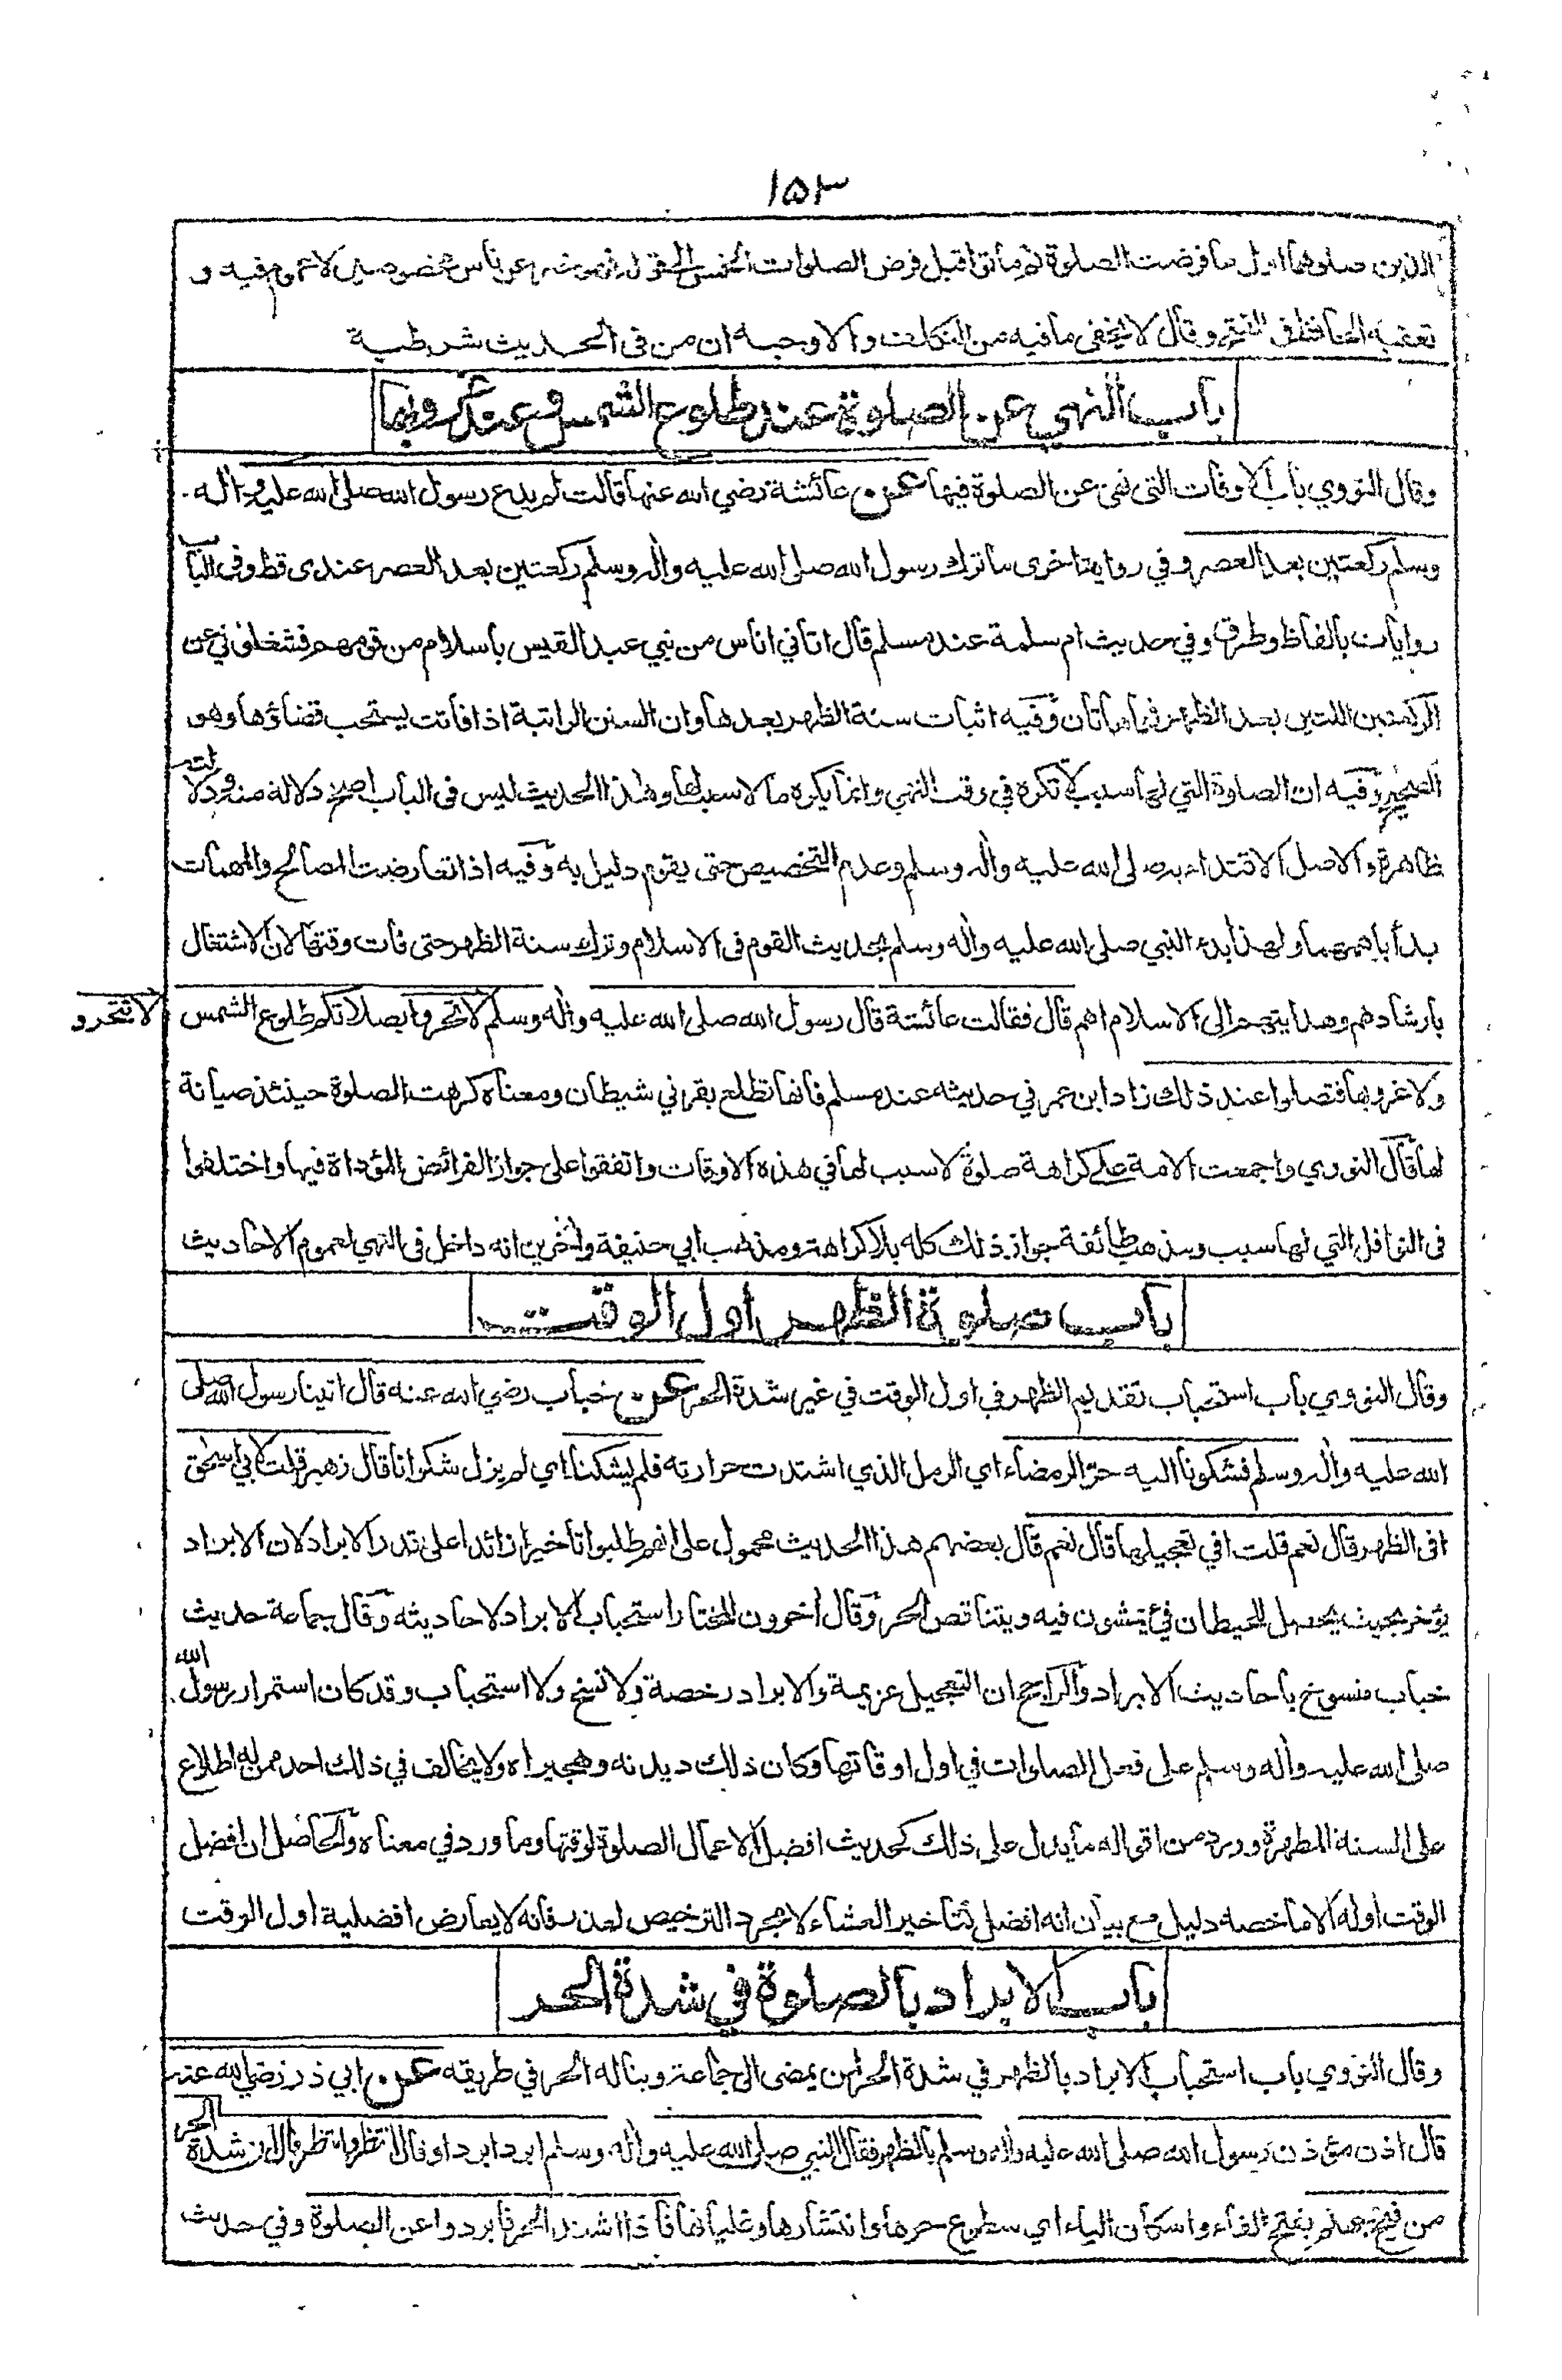 ١٥٣
الذين صلوهما اول ما فرضت الصلوة ثم ماتوا قبل فرض الصلوات الخمس الحق عن ناس مخصوصين لا عموم فيه و
تعقبه الحافظ في الفتح وقال لا يخفى ما فيه من التكلف والاوجه ان من في الحديث شرطية
باب النهي عن الصلوة عند طلوع الشمس وعند غروبها
وقال النووي باب الاوقات التى نهى عن الصلوة فيها عن عائشة رضي الله عنها قالت لم يدع رسول الله صلى الله عليه واله
وسلم ركعتين بعد العصر وفي رواية اخرى ما ترك رسول الله صلى الله عليه واله وسلم ركعتين بعد العصر عندى قط وفى الباب
روايات بالفاظ وطرق وفي حديث ام سلمة عند مسلم قال اتاني اناس من بني عبد القيس باسلام من قومهم فشغلوني عن
الركعتين اللتين بعد الظهر فهما هاتان وفيه اثبات سنة الظهر بعدها وان السنن الراتبة اذا فاتت يستحب قضاؤها وهو
الصحيح وفيه ان الصلوة التي لها سبب لا تكره في وقت النهي وانما يكره ما لا سبب لها وهذا الحديث ليس فى الباب اصح دلالة منه ودلالته
ظاهرة والاصل الاقتداء به صلى الله عليه واله وسلم وعدم التخصيص حتى يقوم دليل به وفيه اذا تعارضت المصالح والمهمات
بدأ باهمها ولهذا بدء النبي صلى الله عليه واله وسلم بحديث القوم فى الاسلام وترك سنة الظهر حتى فات وقتها لان الاشتغال
بارشادهم وهدايتهم الى الاسلام اهم قال فقالت عائشة قال رسول الله صلى الله عليه واله وسلم لا تتحروا بصلاتكم طلوع الشمس
لا تتحرو
ولا غروبها فتصلوا عند ذلك زاد ابن عمر في حديثه عند مسلم فانها تطلع بقرني شيطان ومعناه كرهت الصلوة حينئذ صيانة
لها قال النووي واجمعت الامة على كراهة صلوة لا سبب لها في هذه الاوقات واتفقوا على جواز الفرائض المؤداة فيها واختلفوا
فى النوافل التي لها سبب ومذهب طائفة جواز ذلك كله بلا كراهة ومذهب ابي حنيفة واخرين انه داخل فى النهي لعموم الاحاديث
باب صلوة الظهر اول الوقت
وقال النووي باب استحباب تقديم الظهر في اول الوقت في غير شدة الحر عن خباب رضي الله عنه قال اتينا رسول الله صلى
الله عليه واله وسلم فشكونا اليه حر الرمضاء اي الرمل الذي اشتدت حرارته فلم يشكنا اي لم يزل شكوانا قال زهير قلت لابي اسحق
افى الظهر قال نعم قلت افي تعجيلها قال نعم قال بعضهم هذا الحديث محمول على انهم طلبوا تاخيرا زائدا على قدر الابراد لان الابراد
يؤخر بحيث يحصل للحيطان فئ يمشون فيه ويتناقص الحر وقال اخرون المختار استحباب الابراد لاحاديثه وقال جماعة حديث
خباب منسوخ باحاديث الابراد والراجح ان التعجيل عزيمة والابراد رخصة ولا نسخ ولا استحباب وقد كان استمرار رسول الله
صلى الله عليه واله وسلم على فعل الصلوات في اول اوقاتها وكان ذلك ديدنه وهجيراه ولا يخالف في ذلك احد ممن له اطلاع
على السنة المطهرة وورد من اقواله ما يدل على ذلك كحديث افضل الاعمال الصلوة لوقتها وما ورد في معناه والحاصل ان افضل
الوقت اوله الا ما خصه دليل مع بيان انه افضل كتاخير العشاء لا مجرد الترخيص لعذر فانه لا يعارض افضلية اول الوقت
باب الابراد بالصلوة في شدة الحر
وقال النووي باب استحباب الابراد بالظهر في شدة الحر لمن يمضى الى جماعة ويناله الحر في طريقه عن ابي ذر رضي الله عنه
قال اذن مؤذن رسول الله صلى الله عليه واله وسلم بالظهر فقال النبي صلى الله عليه واله وسلم ابرد ابرد او قال انتظر انتظر وقال ان شدة الحر
من فيح جهنم بفتح الفاء واسكان الياء اي سطوع حرها وانتشارها وغليانها فاذا اشتد الحر فابردوا عن الصلوة وفي حديث